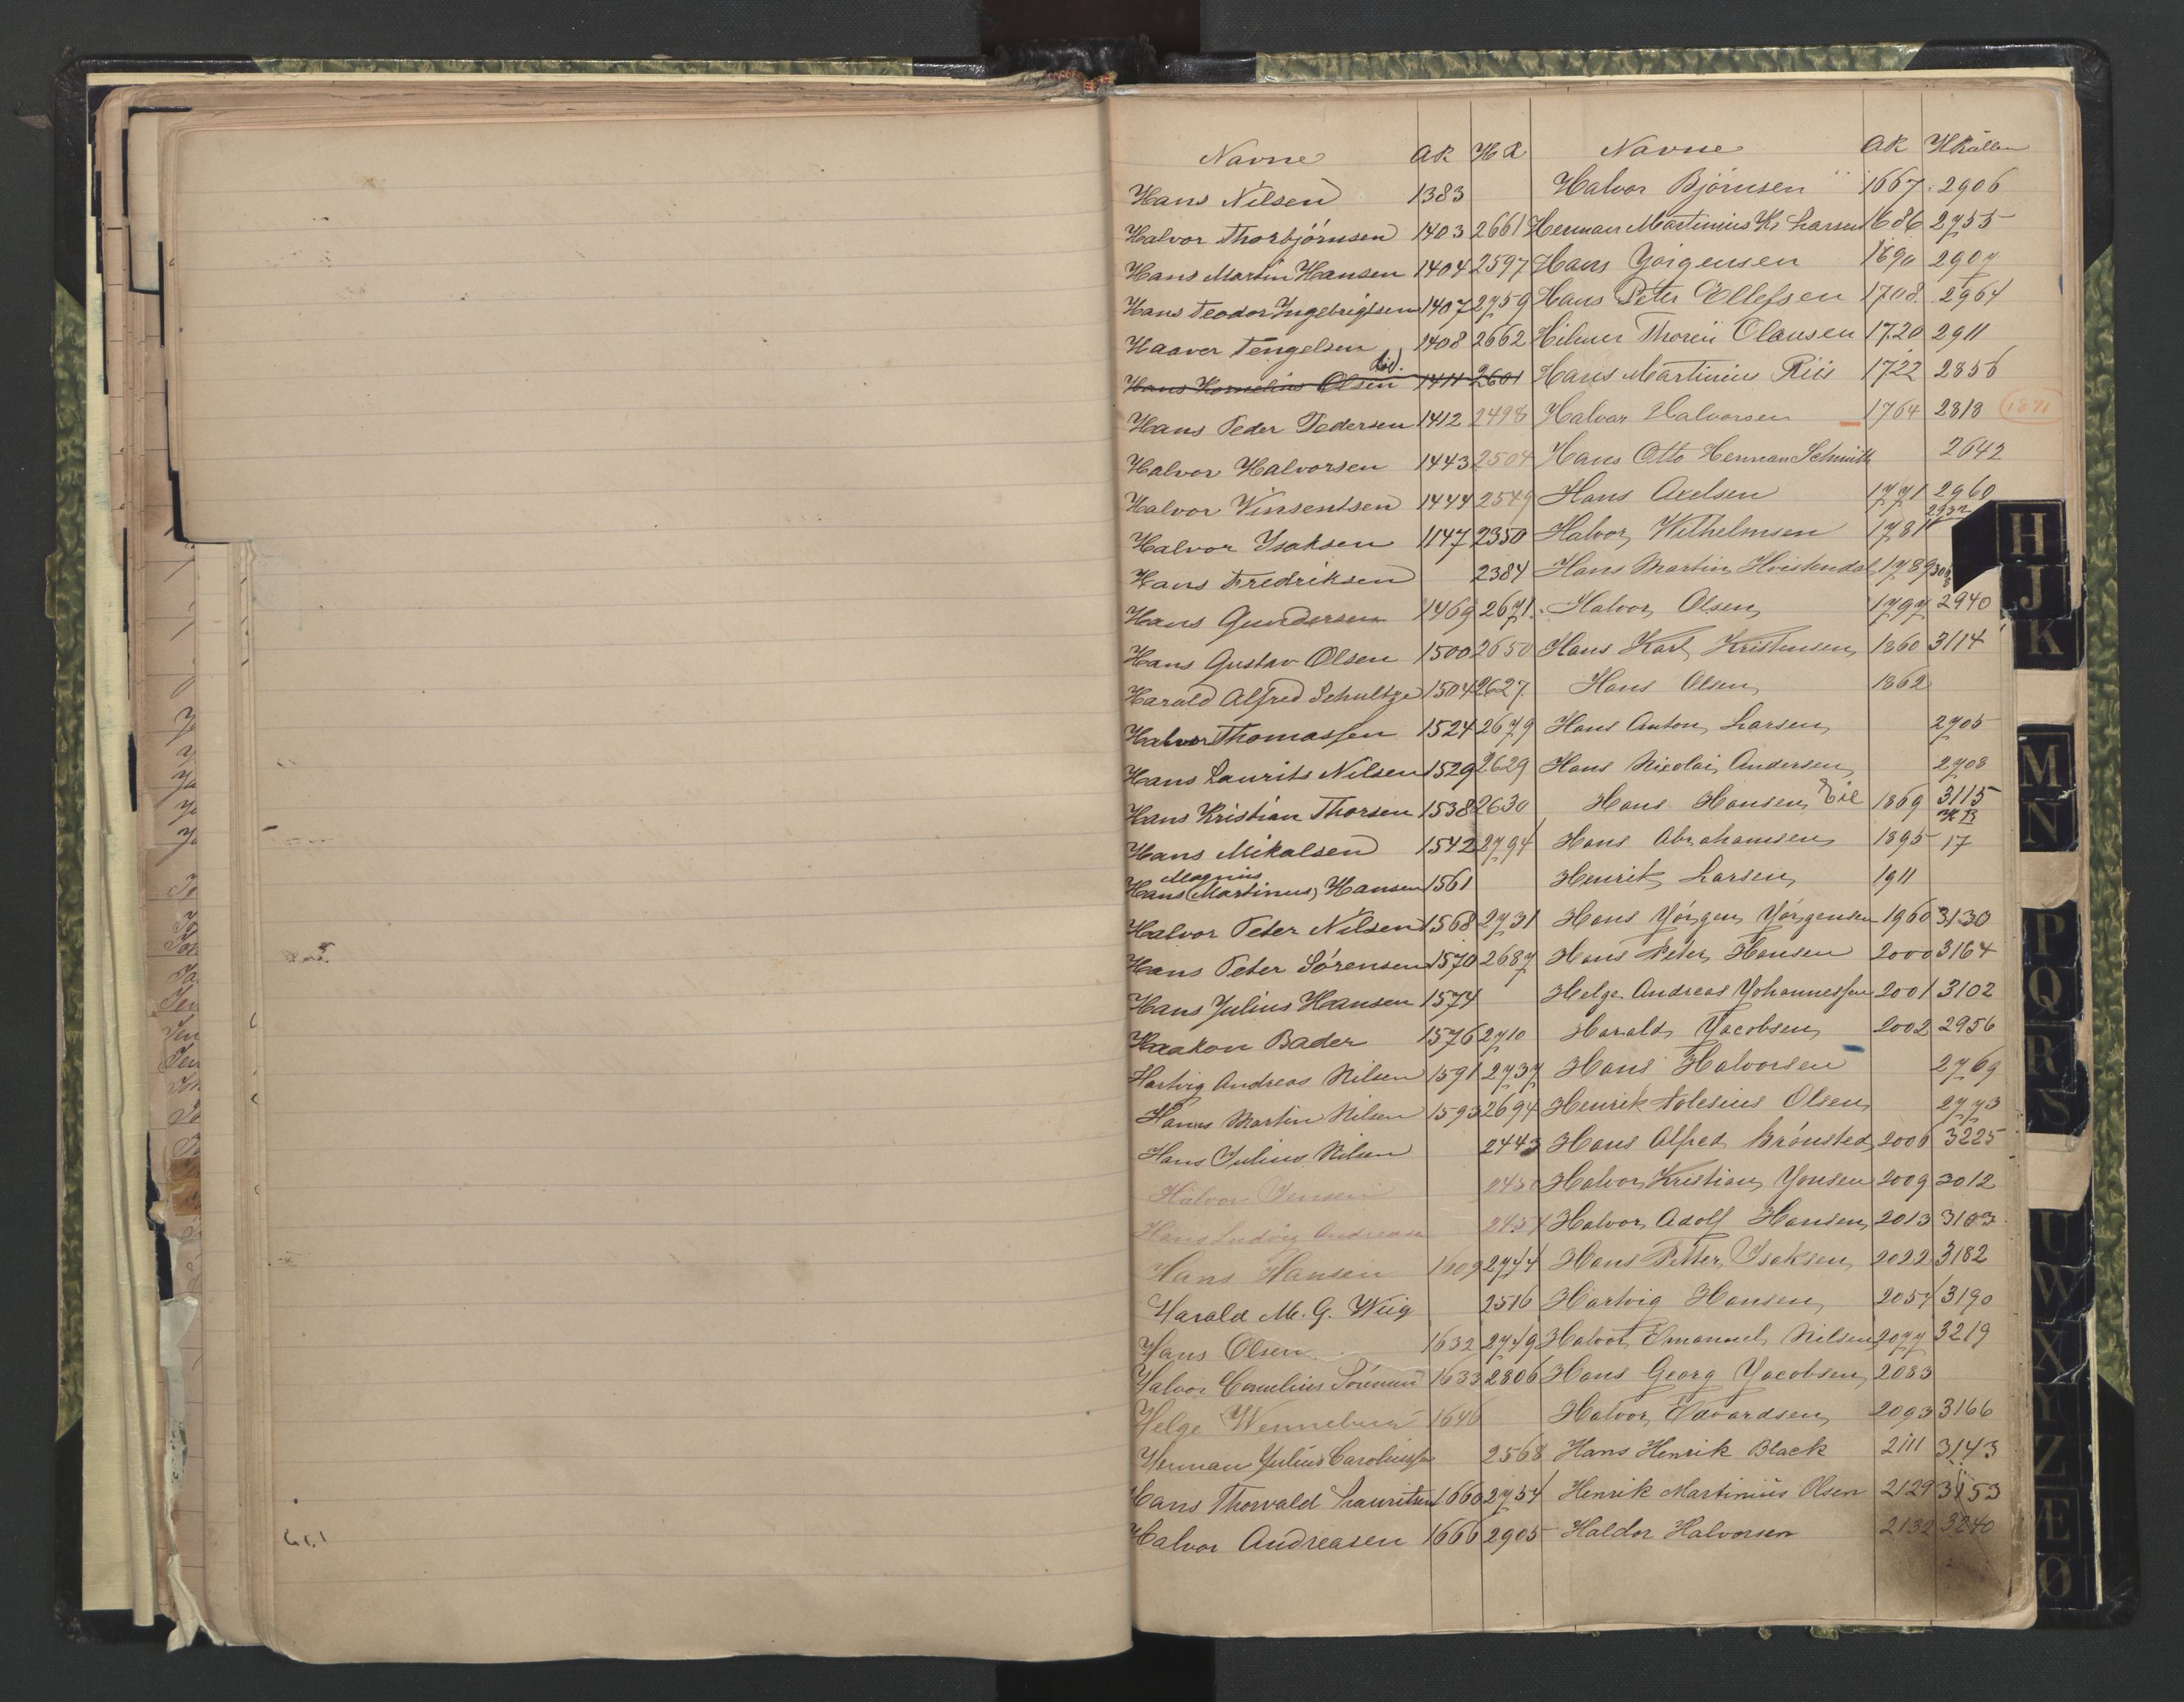 Navne AR HR Navne AR HRullen
Hans Nilsen 1383 Halvor Bjørnsen 1667 2906
Halvor Thorbjørnsen 1403 2661 Herman Martinius Kr Larsen 1686 2755
Hans Martin Hansen 1404 2597 Hans Jørgensen 1690 2907
Hans Teodor Ingebrigtsen 1407 2759 Hans Peter Ellefsen 1708 2964
Haaver Tengelsen 1408 2662 Hilmer Thorei Olausen 1720 2911
Hans Kornelius Olsen død. 1411 2601 Hans Martinius Riis 1722 2856
Hans Peder Pedersen 1412 2498 Halvor Halvorsen 1764 2818 1891
Halvor Halvorsen 1443 2504 Hans Otto Herman Schmith 2642
Halvor Winsentsen 1444 2549 Hans Axelsen 1771 2960
Halvor Isaksen 1147 2350 Halvor Wilhelmsen 1781 2932
Hans Fredriksen 2384 Hans Martin Hvistendal 1789
Hans Gundersen 1469 2671 Halvor Olsen 1797 2940
Hans Gustav Olsen 1500 2650 Hans Karl Kristensen 1860 3114
Harald Alfred Schultze 1504 2627 Hans Olsen 1862
Halvor Thomassen 1524 2679 Hans Anton Larsen 2705
Hans Laurits Nilsen 1529 2629 Hans Nicolai Andersen 2708
Hans Kristian Thorsen 1538 2630 Hans Hansen Eie 1869 3115
Hans Mikalsen 1542 2794 Hans Abrahamsen 1895 HB 17
Hans Magnus (Martinus) Hansen 1561 Henrik Larsen 1911
Halvor Peter Nilsen 1568 2731 Hans Jørgen Jørgensen 1960 3130
Hans Peter Sørensen 1570 2687 Hans Peter Hansen 2000 3164
Hans Julius Hansen 1574 Helge Andreas Johannessen 2001 3102
Haakon Bader 1576 2710 Harald Jacobsen 2002 2956
Hartvig Andreas Nilsen 1591 2737 Hans Halvorsen 2769
Hans Martin Nilsen 1593 2694 Henrik Tolesius Olsen 2773
Hans Julius Nilsen 2443 Hans Alfred Brønsted 2006 3225
Halvor Jensen 2450 Halvor Kristian Jonsen 2009 2012
Hans Ludvig Andreasen 2454 Halvor Adolf Hansen 2013 3183
Hans Hansen 1609 2744 Hans Petter Isaksen 2022 3182
Harald M. G. Wiig 2516 Hartvig Hansen 2054 3190
Hans Olsen 1632 2749 Halvor Emanuel Nilsen 2077 3219
Halvor Cornelius Sørensen 1633 2806 Hans Georg Jacobsen 2083
Helge Wenneberg 1646 Halvor Edvardsen 2093 3166
Herman Julius Caroliussen 2568 Hans Henrik Black 2111 3143
Hans Thorvald Lauritsen 1660 2754 Henrik Martinius Olsen 2129 3153
Halvor Andreasen 1666 2905 Haldor Halvorsen 2132 3240
H
J
K
M
N
P
Q
R
S
U
W
X
Y
Z
Æ
Ø